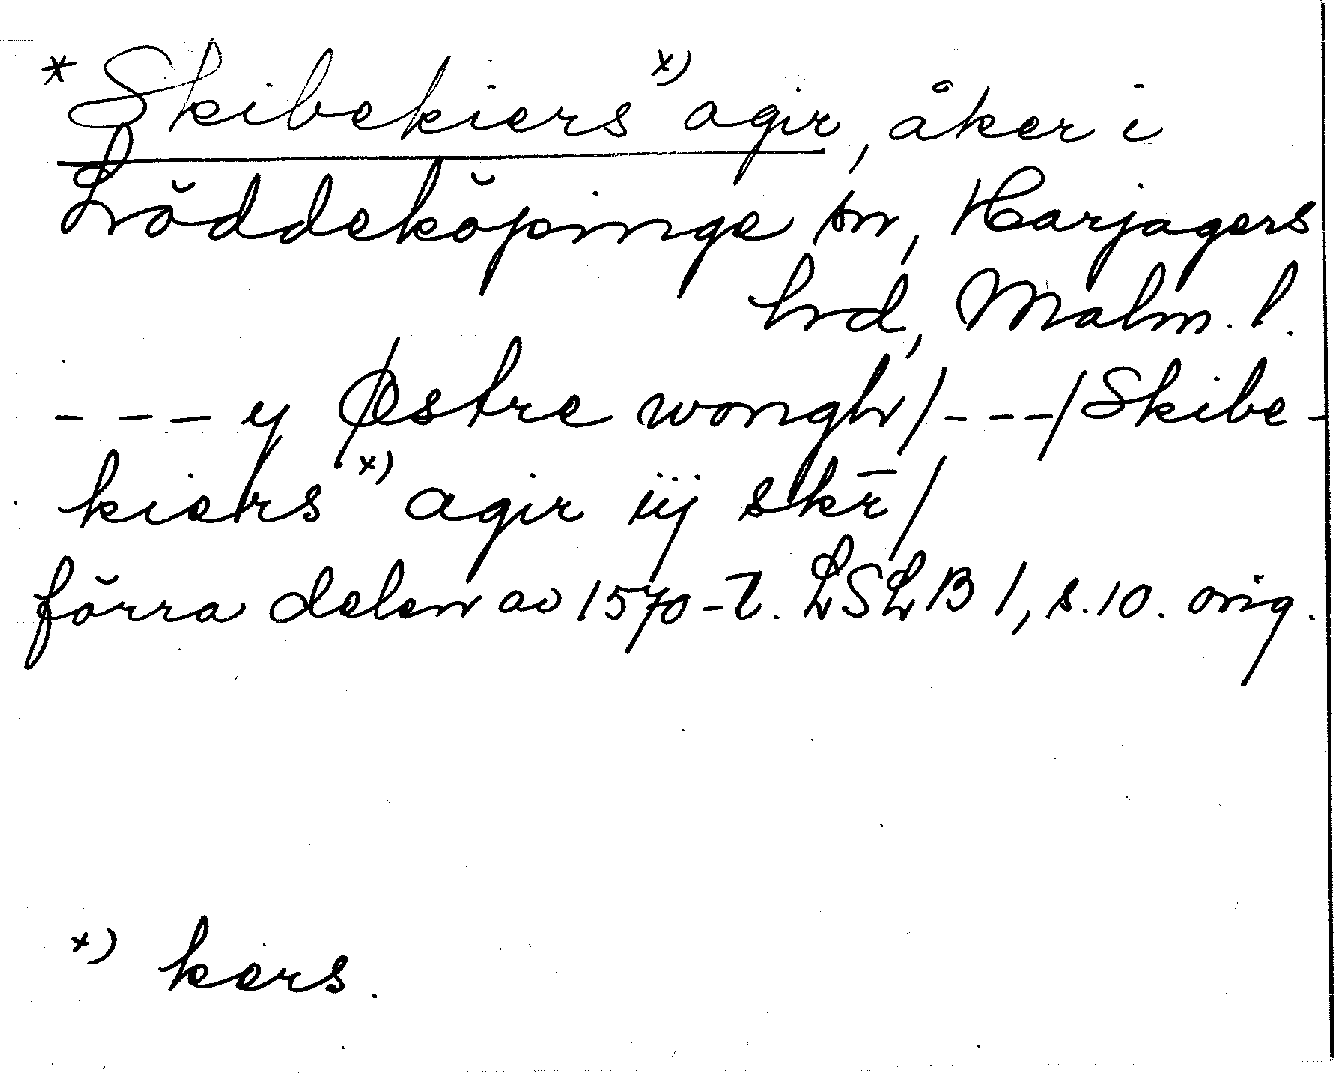 * Skibekiers x) agir, åker i
Löddeköpinge sn, Harjagers
hrd, Malm. l.
- - - y Østre wongh/ - - -/ Skibe-
kiers x) agir iij skr̄/
förra delen av 1570-t. LSLB 1, s. 10. orig.
x) kers.